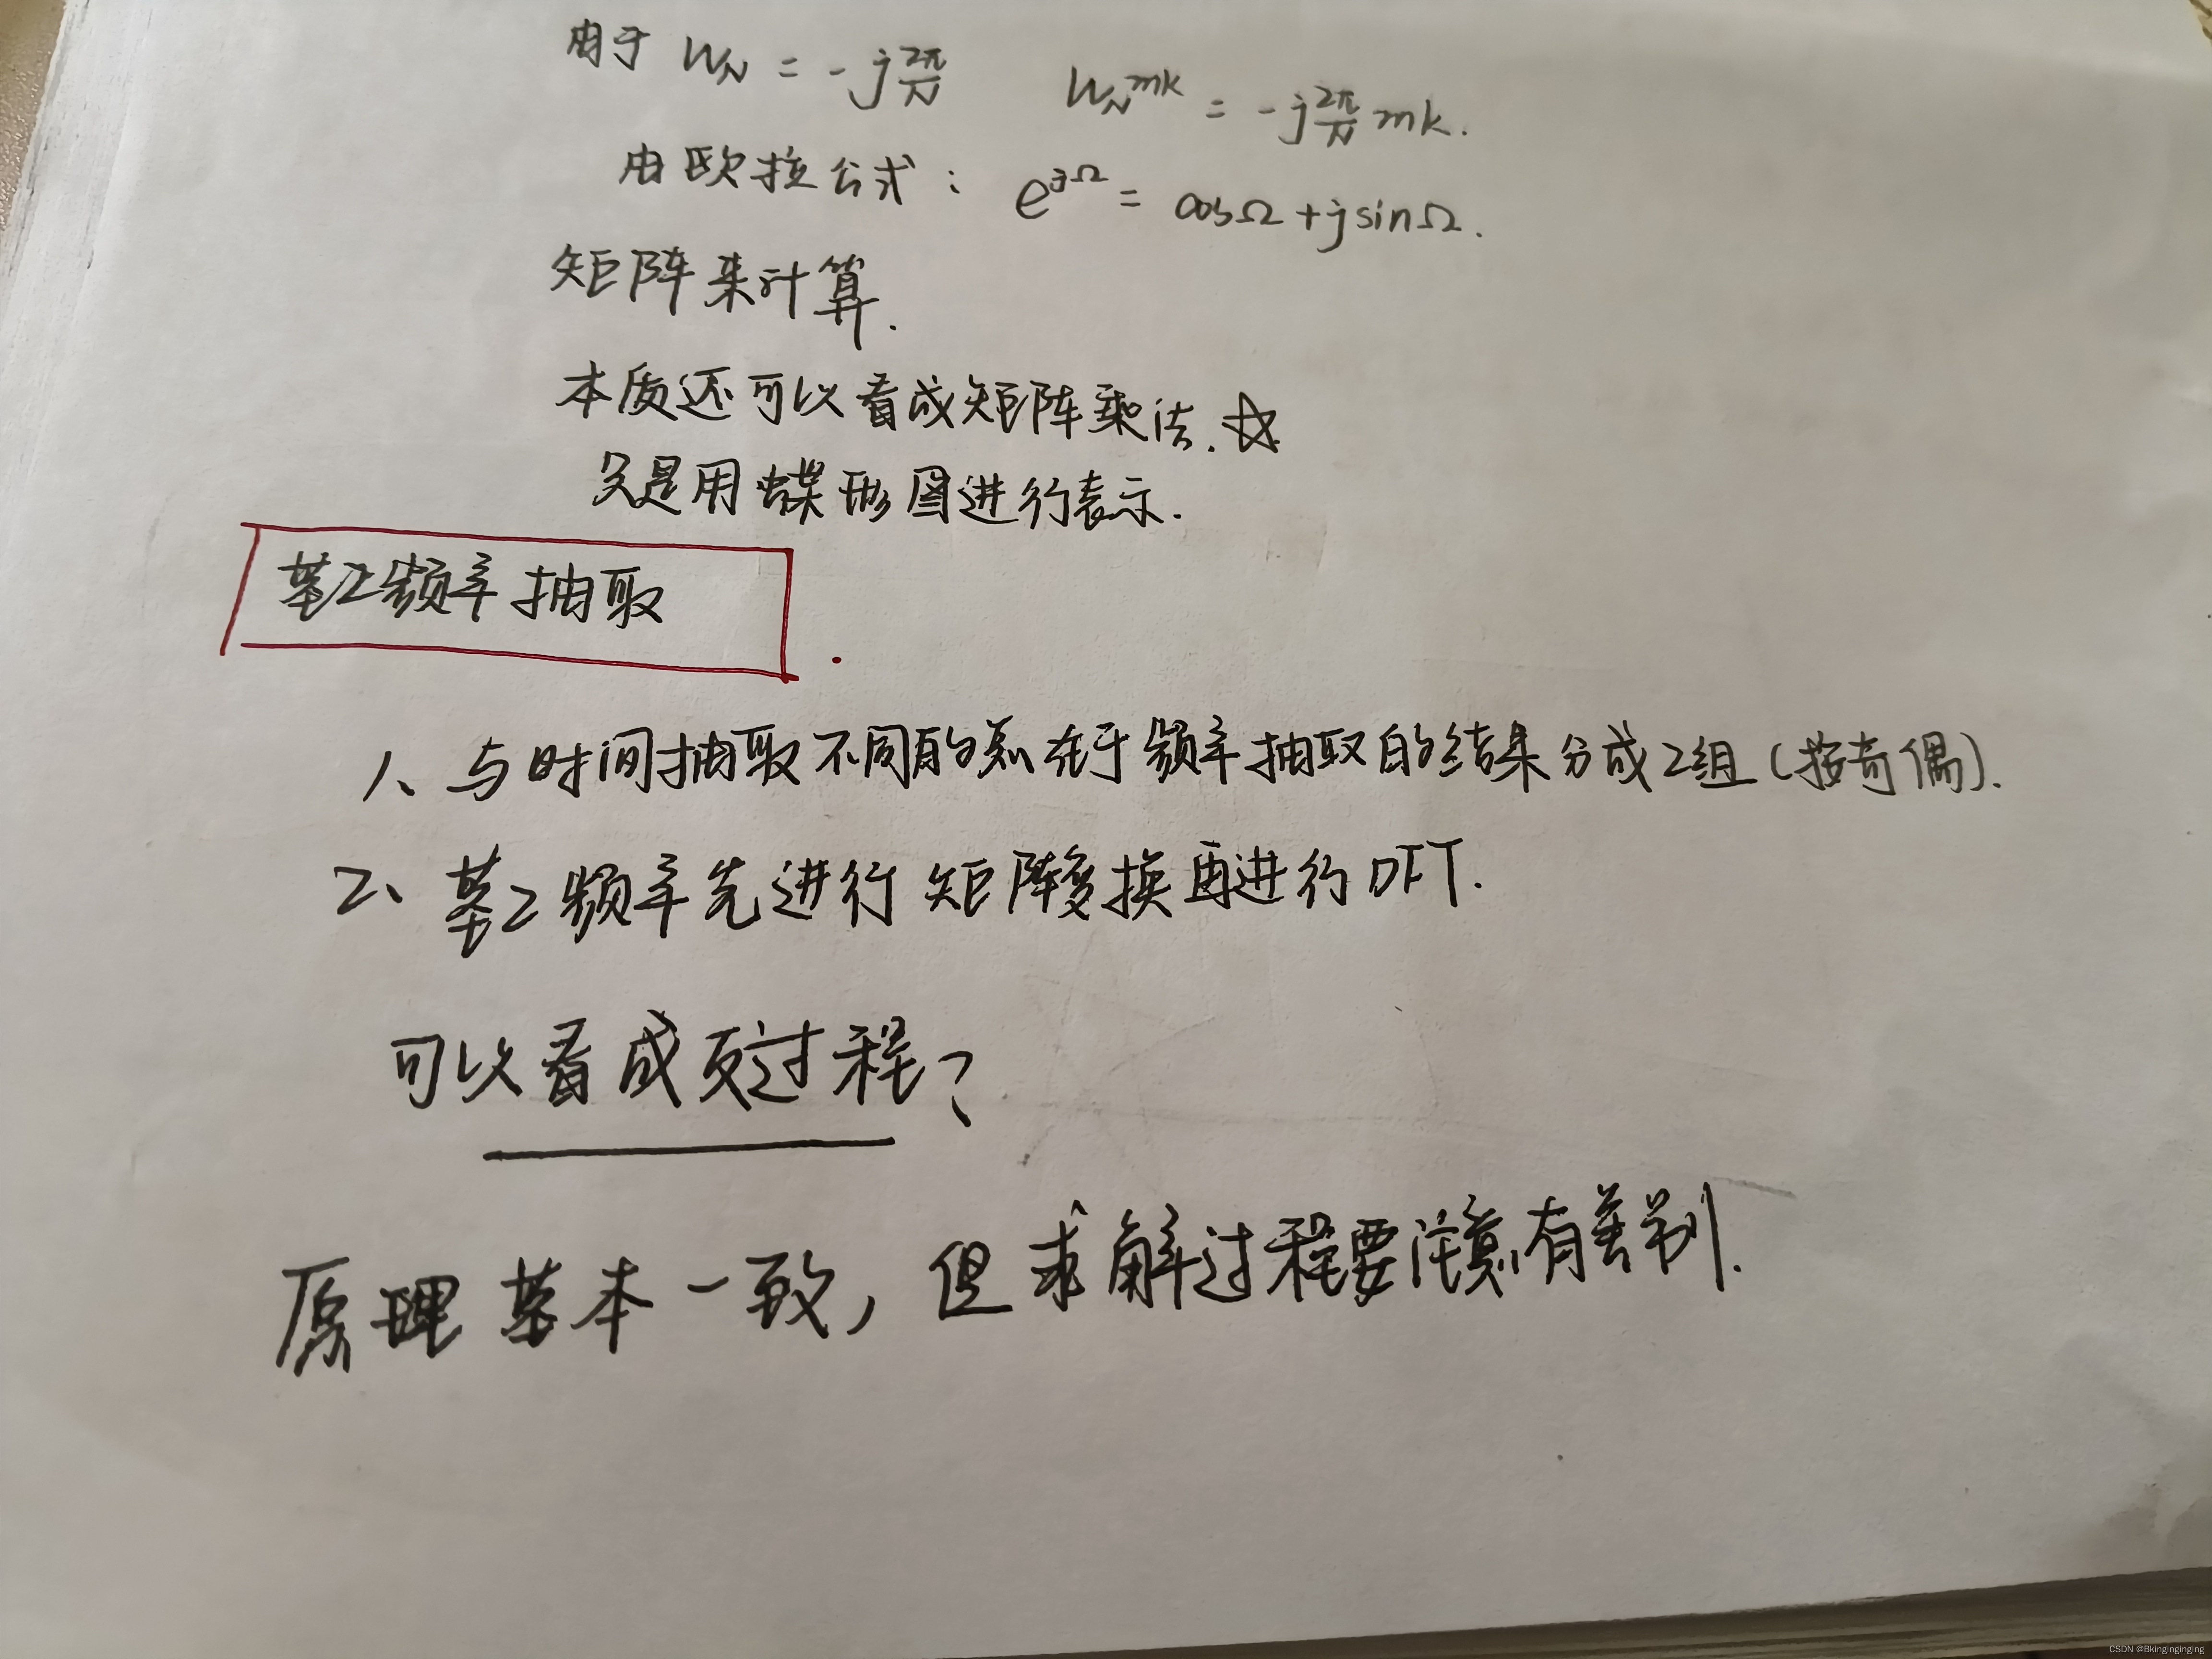 由于 W_N = -j 2π/N    W_N^mk = -j 2π/N mk.
由欧拉公式： e^jΩ = cosΩ + jsinΩ.
矩阵来计算.
本质还可以看成矩阵乘法. ☆
只是用蝶形图进行表示.
基2频率抽取
1、与时间抽取不同的点在于频率抽取的结果分成2组(按奇偶).
2、基2频率先进行矩阵变换再进行DFT.
可以看成反过程？
原理基本一致，但求解过程要注意有差别.
CSDN @Bkinginginging